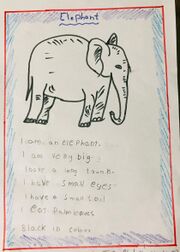 Elephant
I am an elephant.
I am very big
I have a long trunk
I have small eyes
I have a small tail
I eat Palm leaves
Black in colour